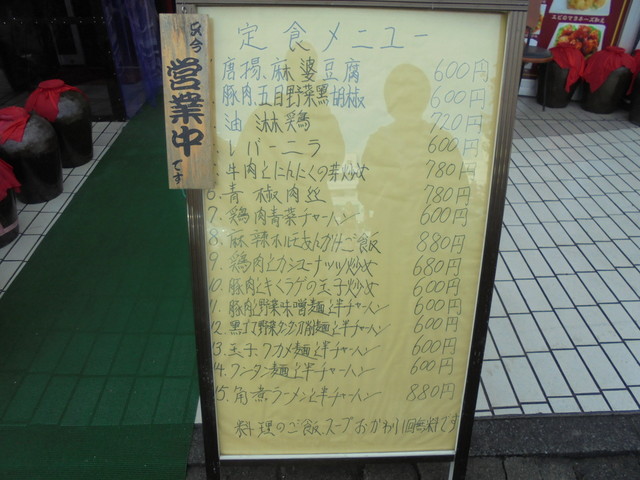 只今
営業中
です
定食メニュー
唐揚、麻婆豆腐 600円
豚肉、五目野菜黒胡椒 600円
油淋鶏 720円
レバーニラ 600円
牛肉とにんにくの芽炒め 780円
6. 青椒肉丝 780円
7. 鶏肉青菜チャーハン 600円
8. 麻辣あんかけご飯 880円
9. 鶏肉とカシューナッツ炒め 680円
10. 豚肉ときくラゲの玉子炒め 600円
11. 豚肉と野菜味噌麺と半チャーハン 600円
12. 黒ゴマ野菜タンタン刀削麺と半チャーハン 600円
13. 玉子、ワカメ麺と半チャーハン 600円
14. ワンタン麺と半チャーハン 600円
15. 角煮ラーメンと半チャーハン 880円
料理のご飯、スープおかわり1回無料です